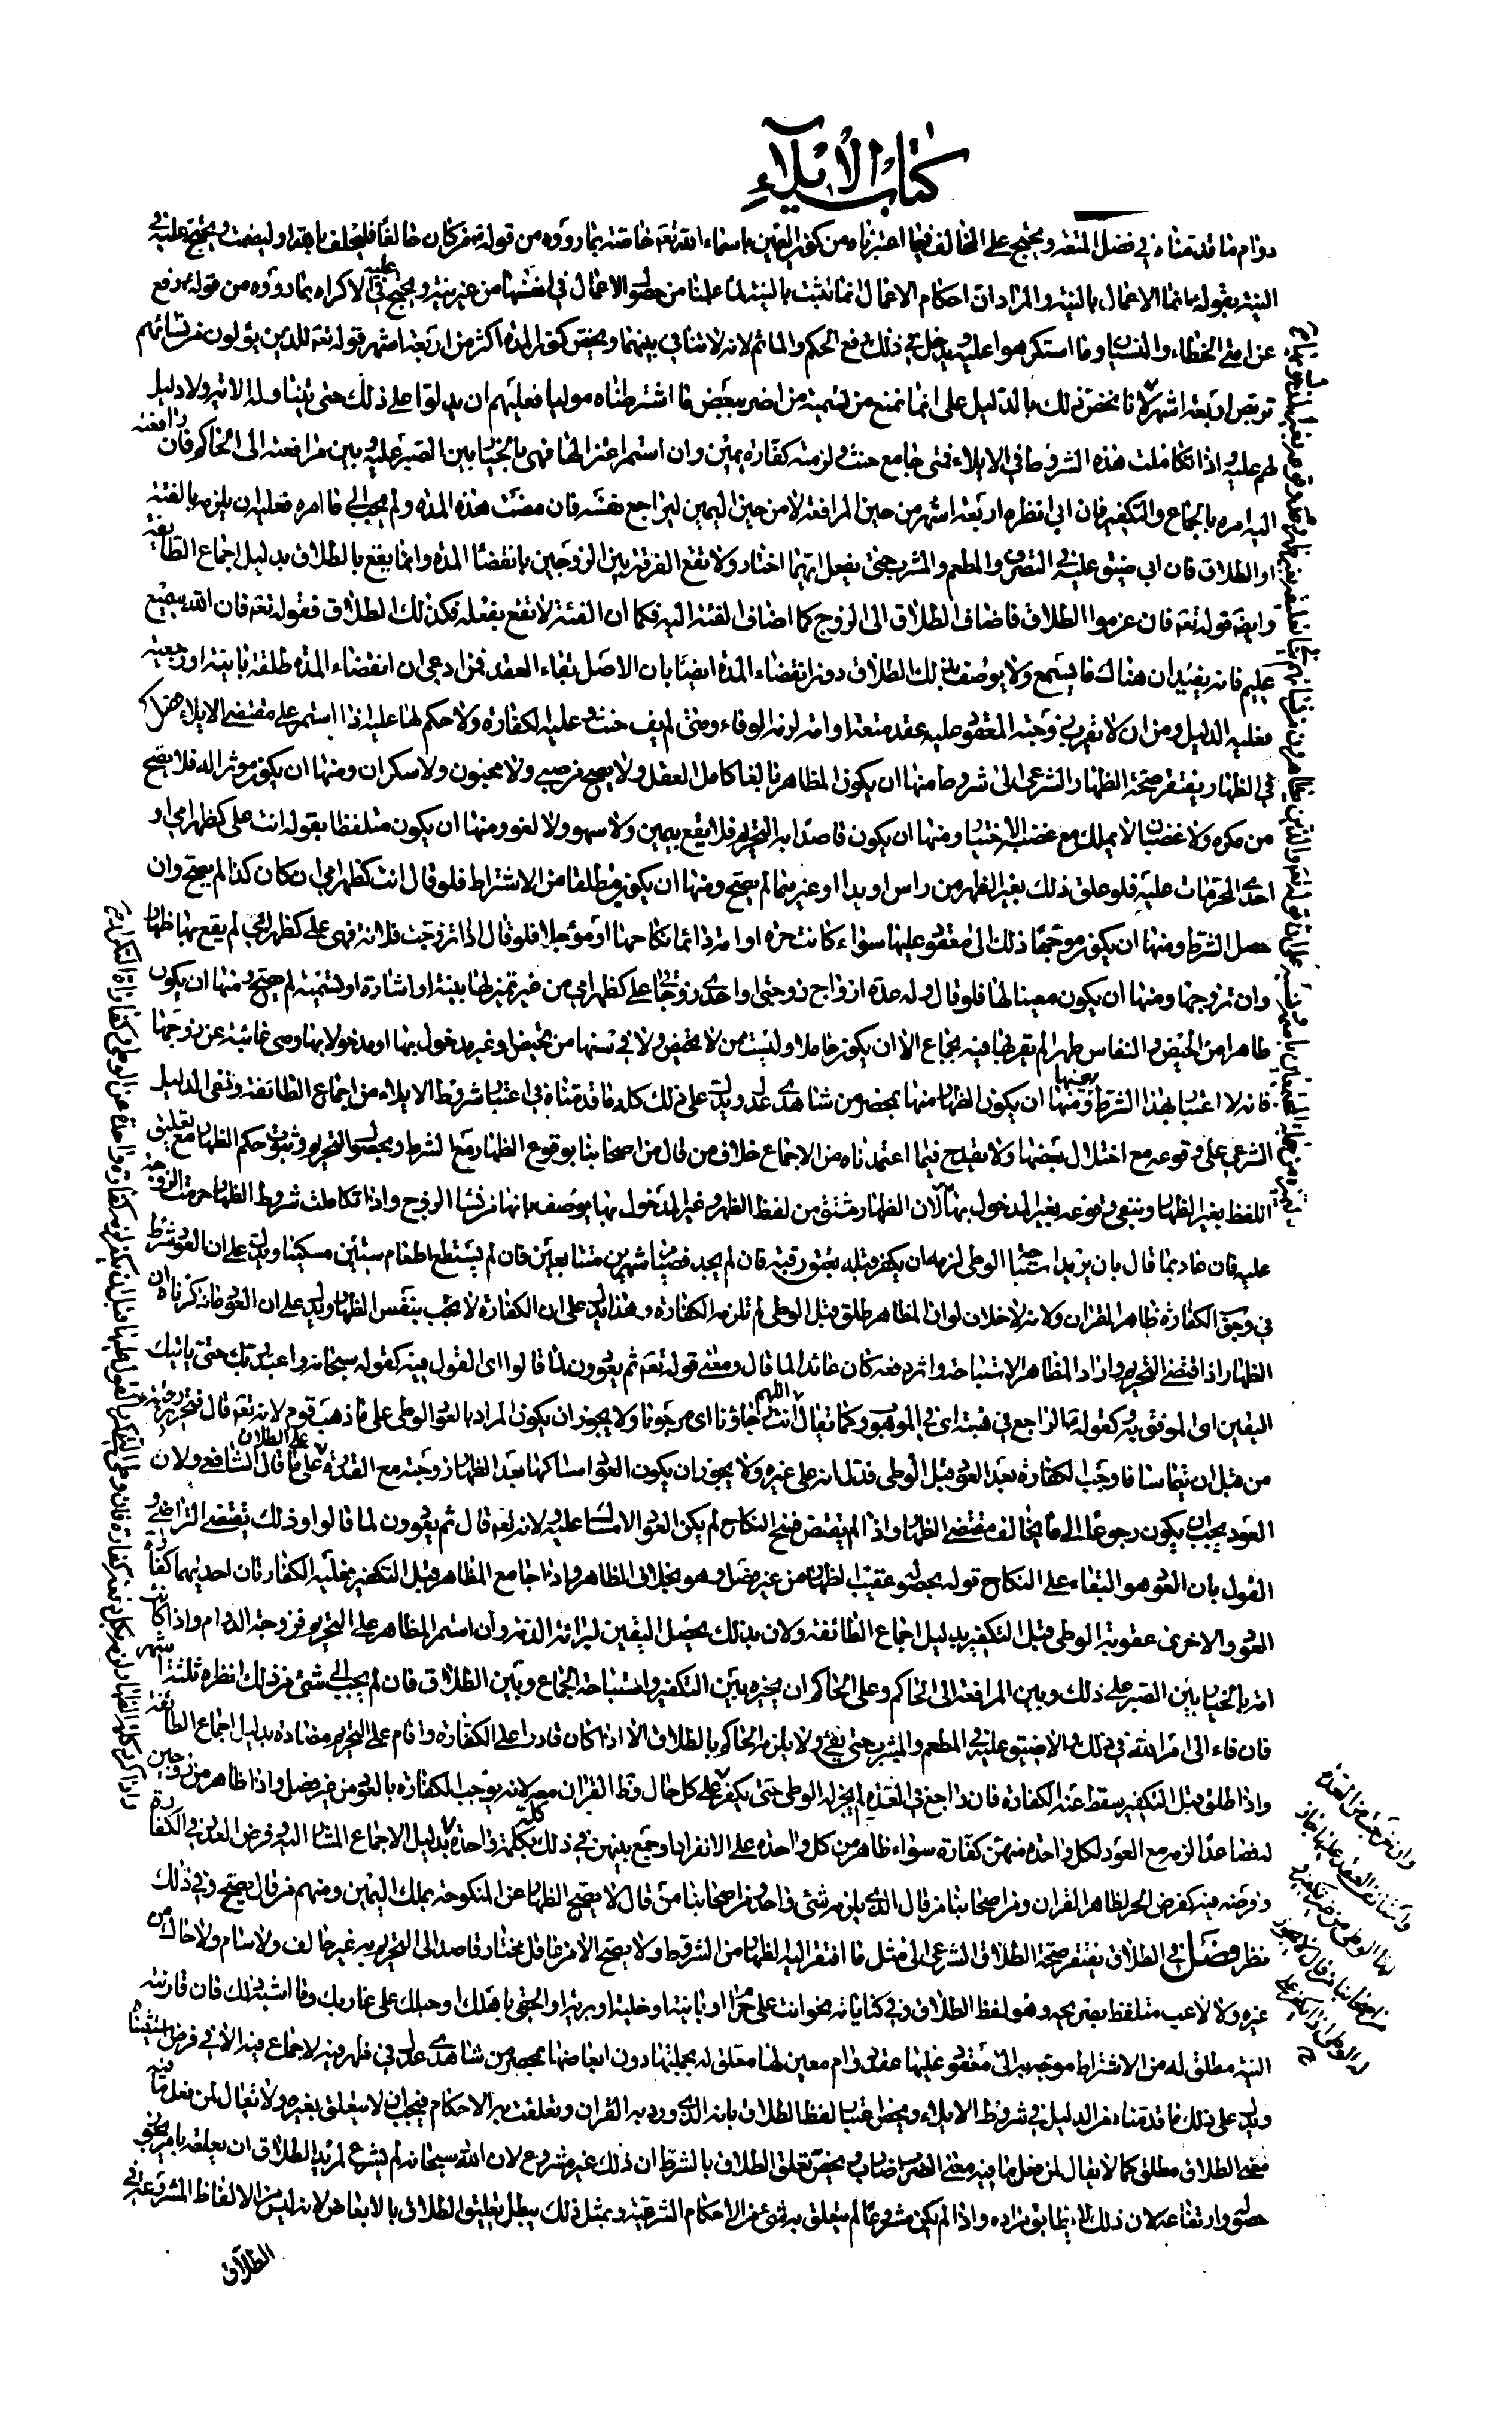 كتاب الإيلاء
دوام ما قدمناه في فصل المتعة ويحتج على المخالف فيما اعتبرناه من كون اليمين باسماء الله تعه خاصة بما رووه من قوله ص من كان حالفا فليحلف بالله او ليصمت ويحتج عليه في
النية بقوله ص انما الاعمال بالنية والمراد ان احكام الاعمال انما تثبت بالنية لما علمنا من حصول الاعمال في انفسها من غير نية ويحتج عليه في الاكراه بما رووه من قوله ص رفع
عن امتي الخطاء والنسيان وما استكرهوا عليه ويدخل في ذلك رفع الحكم والماثم لانه لا تنافي بينهما ويخص كون المدة اكثر من اربعة اشهر قوله تعه للذين يؤلون من نسائهم
تربص اربعة اشهر لانا نخص ذلك بالدليل على انما نمنع من تسمية من اخر ببعض ما اشترطناه موليا فعليهم ان يدلوا على ذلك حتى يتناوله الاية ولا دليل
لهم عليه واذا تكاملت هذه الشروط في الايلاء فمتى جامع حنث ولزمته كفارة يمين وان استمر اعتزالها فهي بالخيار بين الصبر عليه وبين مرافعته الى الحاكم فان رافعته
اليه امره بالجماع والتكفير فان ابى انظره اربعة اشهر من حين المرافعة لا من حين اليمين ليراجع نفسه فان مضت هذه المدة ولم يجب الى ما امره فعليه ان يلزمه بالفئة
او الطلاق فان ابى ضيق عليه في التصرف والمطعم والمشرب حتى يفعل ايهما اختار ولا تقع الفرقة بين الزوجين بانقضاء المدة وانما يقع بالطلاق بدليل اجماع الطايفة
وايضه قوله تعه فان عزموا الطلاق فاضاف الطلاق الى الزوج كما اضاف الفئة اليه فكما ان الفئة لا تقع الا بفعله فكذلك الطلاق فقوله تعه فان الله سميع
عليم فانه يفيد ان هناك ما يسمع ولا يوصف بذلك الا الطلاق دون انقضاء المدة ايضا بان الاصل بقاء العقد فمن ادعى ان انقضاء المدة طلقة باينة او رجعية
فعليه الدليل ومن ان لا يقرب زوجته المعقود عليه عقد متعة او امته لزمه الوفاء ومتى لم يف حنث وعليه الكفارة ولا حكم لها عليه اذا استمر على مقتضى الايلاء فصل
في الظهار يفتقر صحة الظهار الشرعي الى شروط منها ان يكون المظاهر بالغا كامل العقل ولا يصح من صبي ولا مجنون ولا سكران ومنها ان يكون موثرا له فلا يصح
من مكره ولا غضبان لا يملك مع غضبه الاختيار ومنها ان يكون قاصدا به التحريم فلا يقع بيمين ولا سهو ولا لغو ومنها ان يكون متلفظا بقوله انت على كظهر امي او
احدى المحرمات عليه فلو علق ذلك بغير الظهر من راس او يد او غيرهما لم يصح ومنها ان يكون مطلقا من الاشتراط فلو قال انت كظهر امي ان كان كذا لم يصح وان
حصل الشرط ومنها ان يكون موجها ذلك الى معقود عليها سواء كانت حرة او امة دائما نكاحها او مؤجلا فلو قال اذا تزوجت فلانة فهى على كظهر امي لم يقع بها ظهار
وان تزوجها ومنها ان يكون معينا لها فلو قال وله عدة ازواج زوجتي او احدى زوجاتي على كظهر امي من غير تميز لها بنية او اشارة او تسمية لم يصح ومنها ان يكون
طاهرا من الحيض والنفاس طهرا لم يقربها فيه بجماع الا ان يكون حاملا او ليست ممن لا تحيض ولا في سنها من تحيض او غير مدخول بها او مدخولا بها وهى غائبة عن زوجها
فانه لا اعتبار بهذا الشرط ومنها ان يكون الظهار منها بمحضر من شاهدى عدل ويدل على ذلك كله ما قدمناه في اعتبار شروط الايلاء من اجماع الطائفة ونفى الدليل
الشرعي على وقوعه مع اختلال بعضها ولا يقدح فيما اعتمدناه من الاجماع خلاف من قال من اصحابنا بوقوع الظهار مع الشرط وبحصول التحريم وثبوت حكم الظهار مع تعليق
اللفظ بغير الظهر وبنفى وقوعه بغير المدخول بها لان الظهار مشتق من لفظ الظهر وغير المدخول بها يوصف بانها من نساء الزوج واذا تكاملت شروط الظهار حرمت الزوجة
عليه فان عاد بما قال بان يريد استباحة الوطى لزمه ان يكفر قبله بعتق رقبة فان لم يجد فصيام شهرين متتابعين فان لم يستطع اطعام ستين مسكينا ويدل على ان العود شرط
في وجوب الكفارة ظاهر القران ولانه لا خلاف لو ان المظاهر طلق قبل الوطى لم تلزمه الكفارة وهذا يدل على ان الكفارة لا تجب بنفس الظهار ويدل على ان العود ما ذكرناه ان
الظهار اذا اقتضى التحريم واراد المظاهر الاستباحة واثر رفعه كان عائدا لما قال ومعنى قوله تعه ثم يعودون لما قالوا اى المقول فيه كقوله سبحانه واعبد ربك حتى ياتيك
اليقين اى الموقن به وكقوله ص الراجع في هبته اى في الموهوب وكما تقال اللهم انت رجاؤنا اى مرجونا ولا يجوز ان يكون المراد بالعود الوطى على ما ذهب قوم لانه تعه قال فتحرير رقبة
من قبل ان يتماسا فاوجب الكفارة بعد العود قبل الوطى فدل انه على غيره ولا يجوز ان يكون العود امساكها بعد الظهار زوجته مع القدرة على الطلاق على ما قال الشافعي ولان
العود يجب ان يكون رجوعا الى ما يخالف مقتضى الظهار واذا لم يقتض فسخ النكاح لم يكن العود الامساك عليه ولانه تعه قال ثم يعودون لما قالوا وذلك يقتضى التراخي و
القول بان العود هو البقاء على النكاح قوله بحصوله عقيب الظهار من غير فصل وهو بخلاف الظاهر واذا جامع المظاهر قبل التكفير فعليه الكفارتان احديهما كفارة
العود والاخرى عقوبة الوطى قبل التكفير بدليل اجماع الطائفة ولان بذلك يحصل اليقين لبرائة الذمة وان استمر المظاهر على التحريم فزوجته الدوام واذا كانت
امة بالخيار بين الصبر على ذلك وبين المرافعة الى الحاكم وعلى الحاكم ان يخيره بين التكفير واستباحة الجماع وبين الطلاق فان لم يجب الى شئ من ذلك انظره ثلثة اشهر
فان فاء الى امر الله في ذلك والا ضيق عليه في المطعم والمشرب حتى يفئ ولا يلزمه الحاكم بالطلاق الا اذا كان قادرا على الكفارة واقام على التحريم مضارة بدليل اجماع الطائفة
واذا طلق قبل التكفير سقط عنه الكفارة فان راجع في العدة لم يجز له الوطى حتى يكفر على كل حال وظ القران معه لانه يوجب الكفارة بالعود من غير فصل واذا ظاهر من زوجين
لفصاعدا لزمه مع العود لكل واحدة منهن كفارة سواء ظاهر من كل واحدة على الانفراد او جمع بينهن في ذلك كله بكلمة واحدة بدليل الاجماع المشار اليه وفرض العبد في الكفارة
وفرضه فيه كفرض الحر لظاهر القران ومن اصحابنا من قال الذى يلزمه شئ واحد ومن اصحابنا من قال لا يصح الظهار عن المنكوحة بملك اليمين ومنهم من قال يصح وفي ذلك
نظر فصل في الطلاق يفتقر صحة الطلاق الشرعي الى مثل ما افتقر اليه الظهار من الشروط ولا يصح الا من عاقل مختار قاصد الى التحريم به غير حالف ولا ساه ولا حاك من
غيره ولا لاعب متلفظ بصريحه وهو لفظ الطلاق دون كناياته نحو انت على حرام او باينة او خلية او برية او الحقي باهلك او حبلك على غاربك وما اشبه ذلك فان قارنته
النية مطلق له من الاشتراط موجه به الى معقود عليها عقد دوام معين لها معلق له بجملتها دون ابعاضها بمحضر من شاهدى عدل في طهر فيه لا جماع فيه الا في فرض استثناه
ويدل على ذلك ما قدمناه من الدليل في شروط الايلاء ويخص اعتبار لفظ الطلاق بانه الذى ورد به القران وتعلقت به الاحكام فيجب ان لا يتعلق بغيره ولا تقال لمن فعل ما فيه
معنى الطلاق مطلق كما لا يقال لمن فعل ما فيه معنى الضرب ضارب ويخص تعلق الطلاق بالشرط ان ذلك غير مشروع لان الله سبحانه لم يشرع لمريد الطلاق ان يعلقه بامر يجوز
حصوله وارتفاعه لان ذلك لا يطابق مراده واذا لم يكن مشروعا لم يتعلق به شئ من الاحكام الشرعية وبمثل ذلك يبطل تعليق الطلاق بالابعاض لانه ليس من الالفاظ المشروعة في
الطلاق